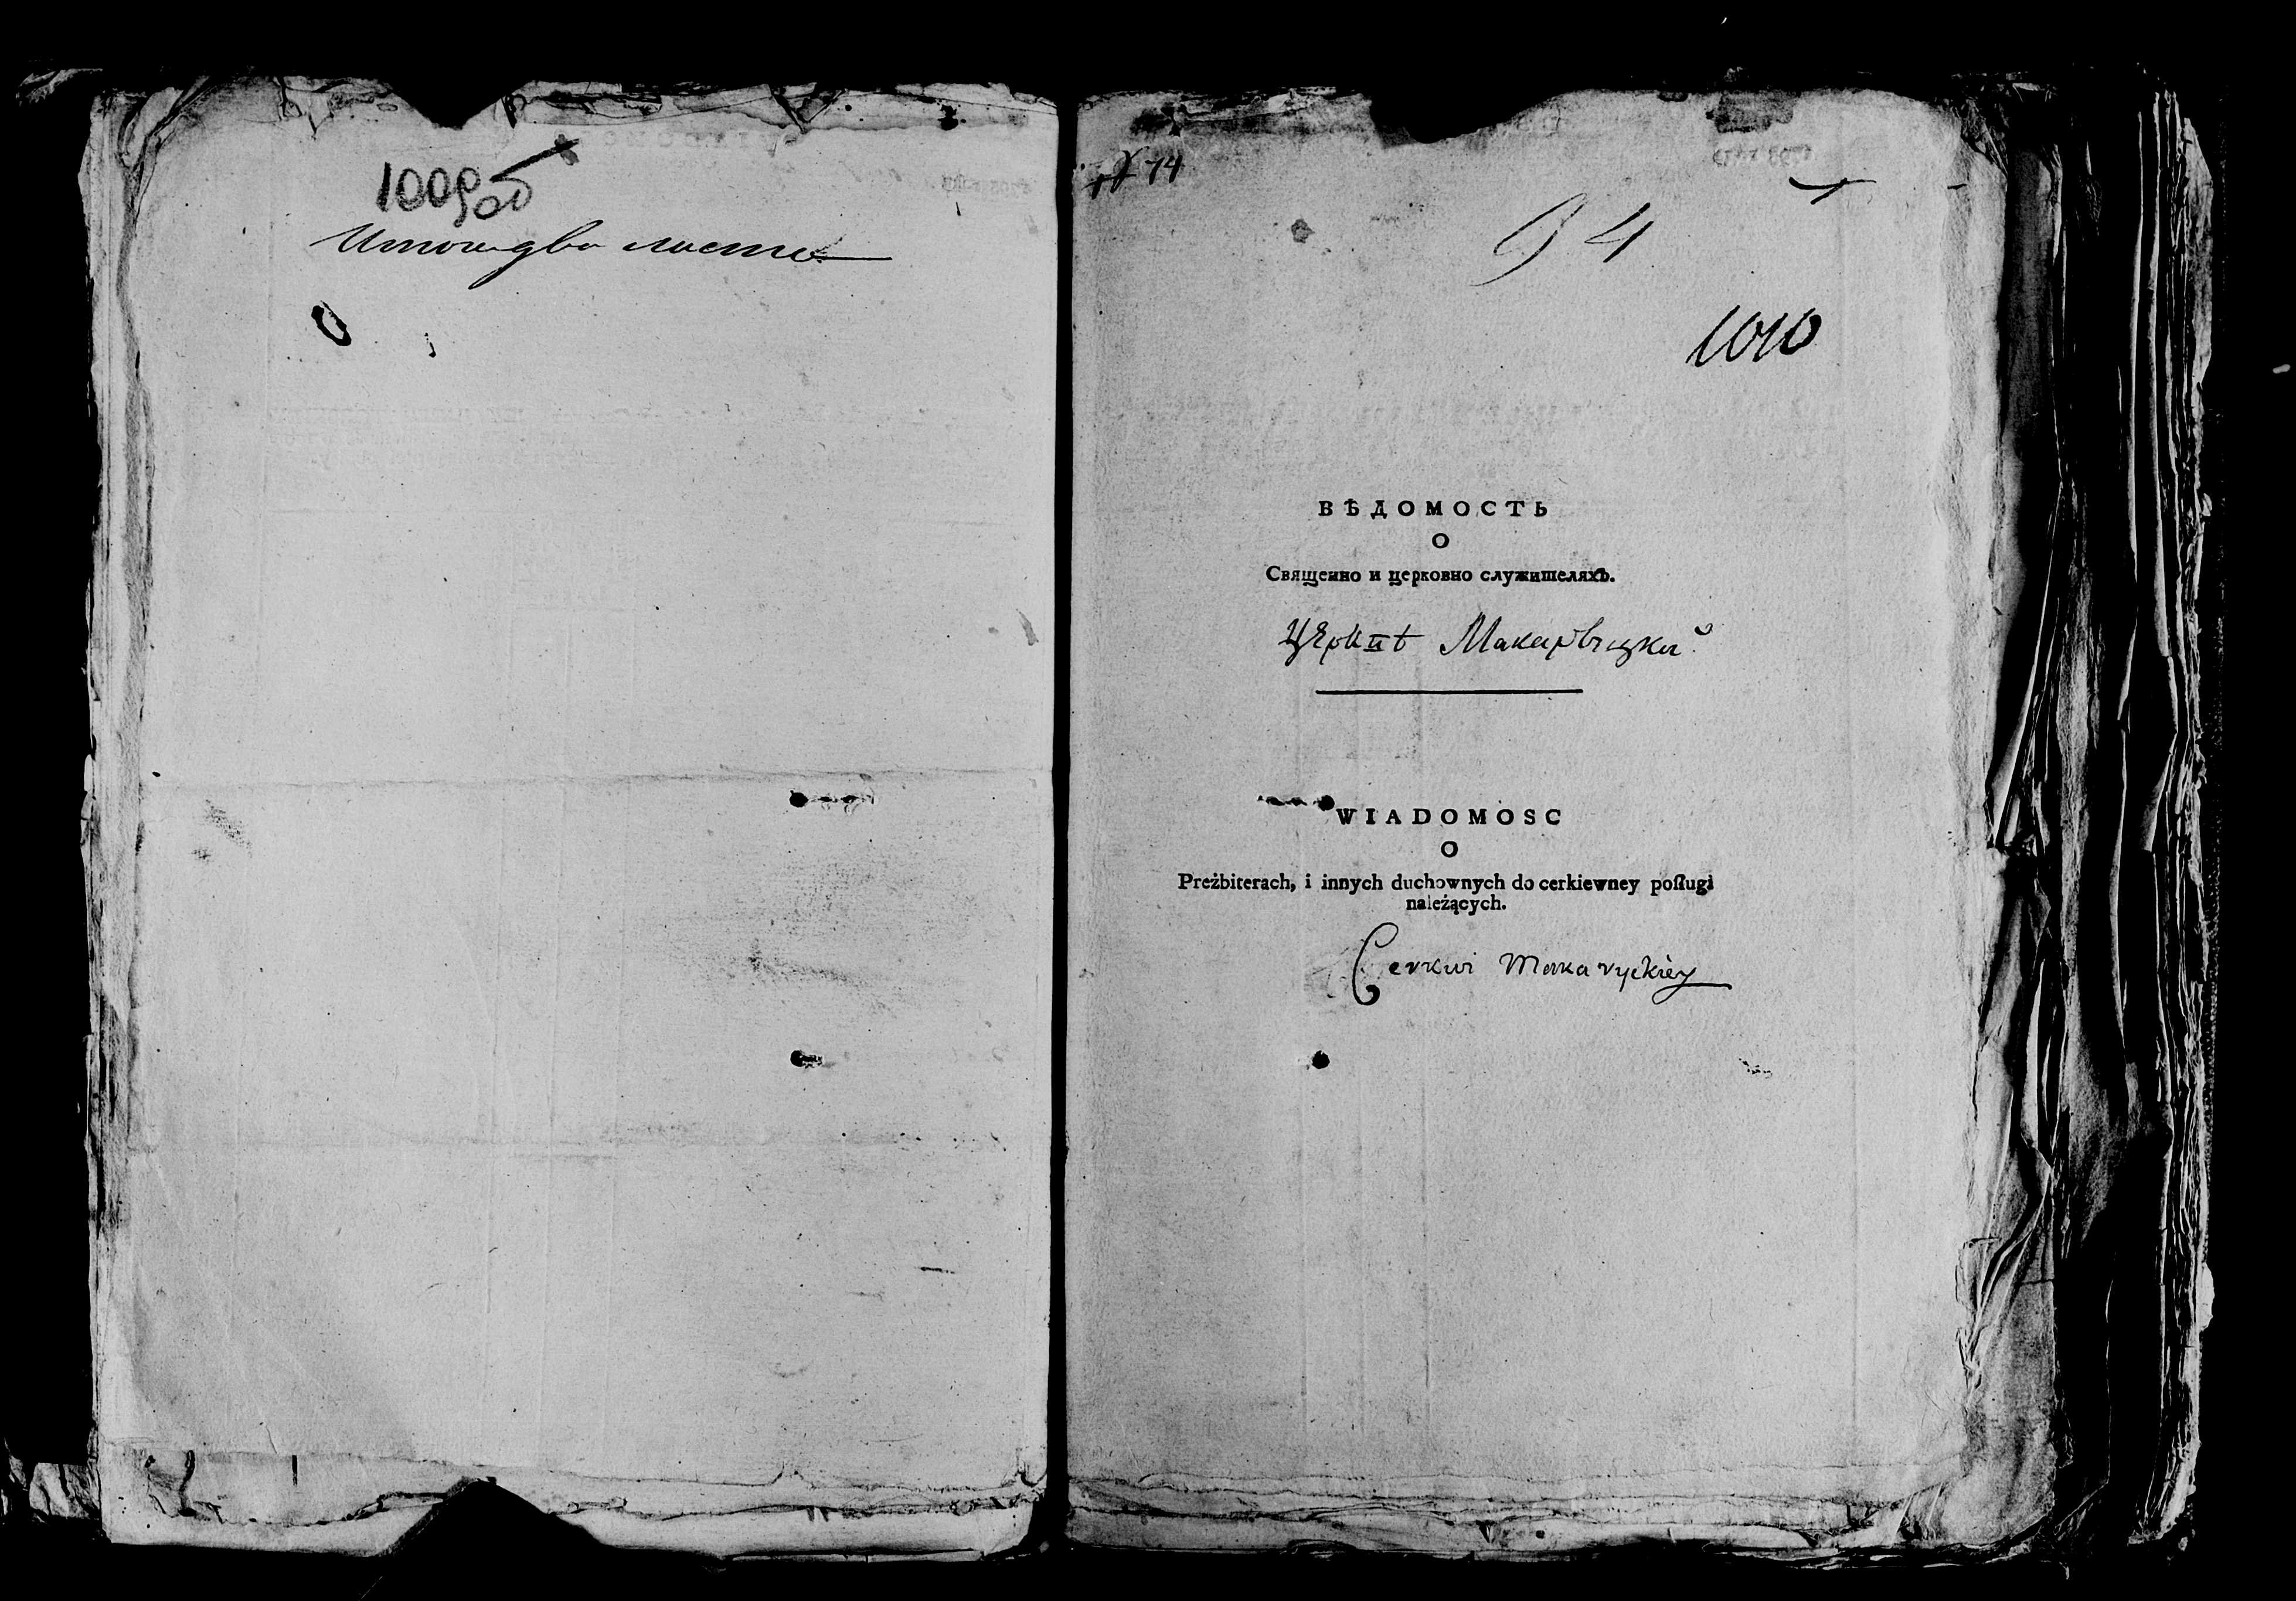 1009об
Итого два листа
№ 74
94
1010
ВѢДОМОСТЬ
О
Священно и церковно служителяхъ.
Церквѣ
WIADOMOSC
O
Preżbiterach, i innych duchownych do cerkiewney poſługi
należących.
Cerkwi Makaryckiey